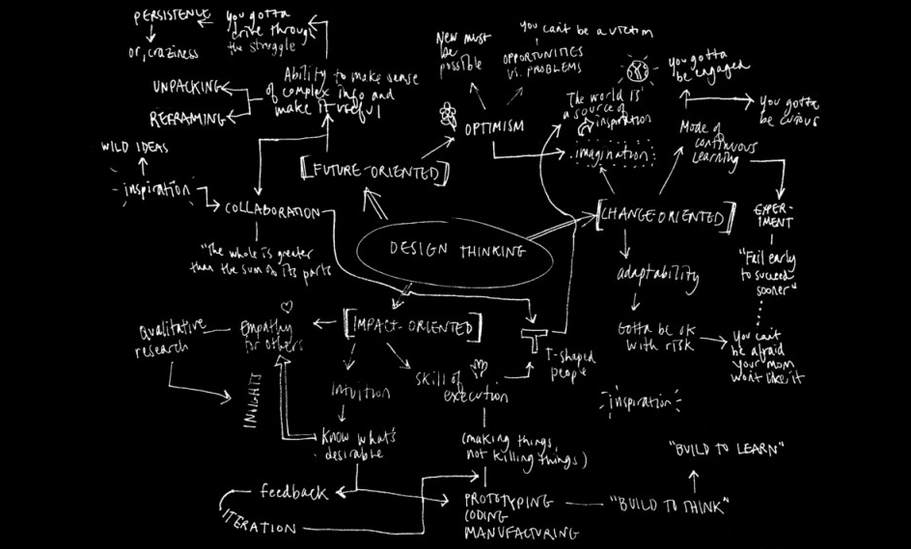 PERSISTENCE
or, craziness
you gotta
drive through
the struggle
UNPACKING
REFRAMING
Ability to make sense
of complex info and
make it useful
New must
be
possible
you can't be a victim
OPPORTUNITIES
VS. PROBLEMS
OPTIMISM
The world is
a source of
inspiration
imagination
you gotta
be engaged
you gotta
be curious
Mode of
continuous
learning
WILD IDEAS
inspiration
COLLABORATION
"The whole is greater
than the sum of its parts
[FUTURE-ORIENTED]
DESIGN THINKING
[CHANGE-ORIENTED]
EXPER-
IMENT
"Fail early
to succeed
sooner"
adaptability
Gotta be ok
with risk
You can't
be afraid
your mom
won't like it
[IMPACT-ORIENTED]
Empathy
for others
qualitative
research
INSIGHTS
intuition
Know what's
desirable
skill of
execution
T-shaped
people
inspiration
(making things,
not killing things)
feedback
ITERATION
PROTOTYPING
CODING
MANUFACTURING
"BUILD TO THINK"
"BUILD TO LEARN"